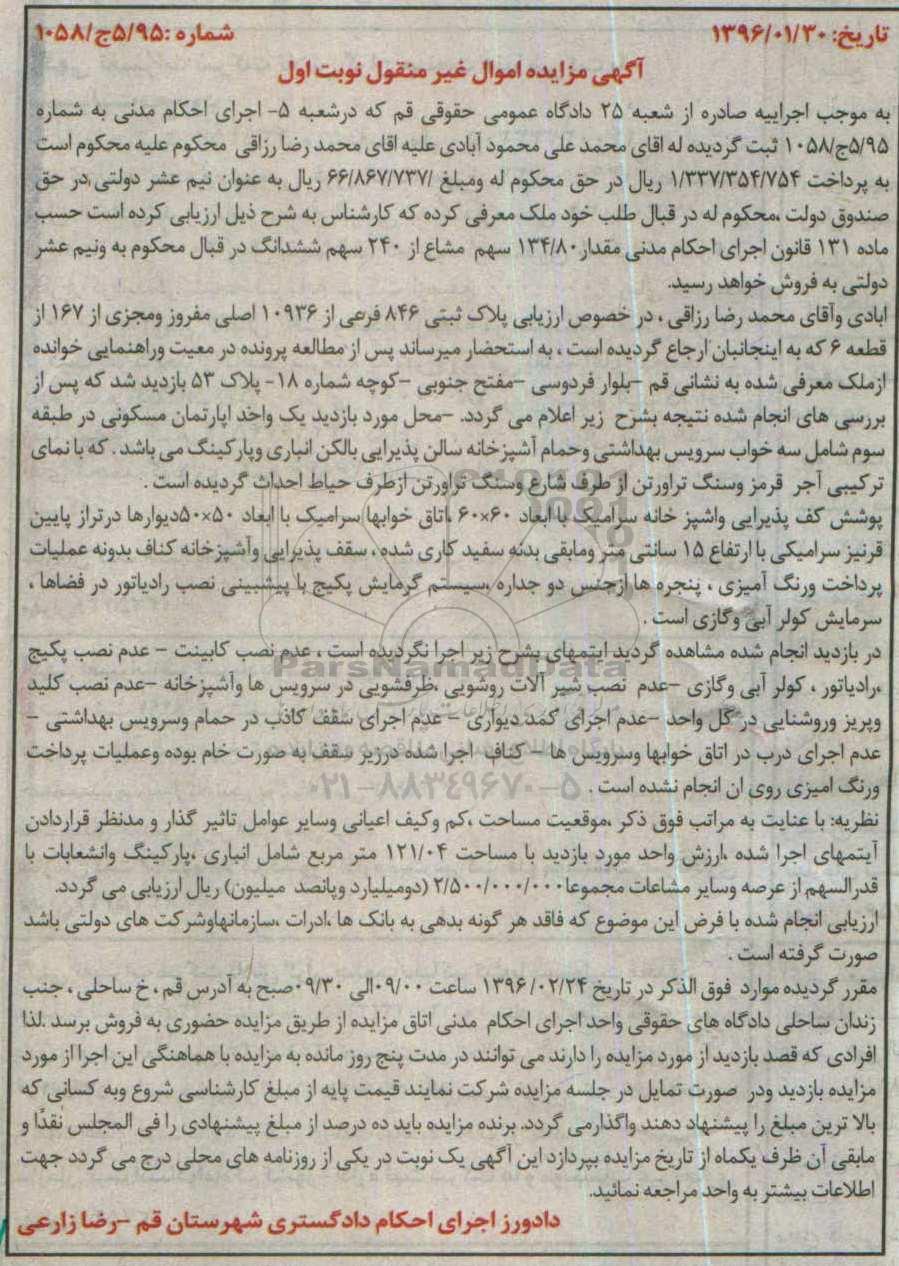 تاریخ: ۱۳۹۶/۰۱/۳۰ شماره :۵/۹۵ج/۱۰۵۸
آگهی مزایده اموال غیر منقول نوبت اول
به موجب اجراییه صادره از شعبه ۲۵ دادگاه عمومی حقوقی قم که درشعبه ۵- اجرای احکام مدنی به شماره
۵/۹۵ج/۱۰۵۸ ثبت گردیده له اقای محمد علی محمود آبادی علیه اقای محمد رضا رزاقی محکوم علیه محکوم است
به پرداخت ۱/۳۳۷/۳۵۴/۷۵۴ ریال در حق محکوم له ومبلغ /۶۶/۸۶۷/۷۳۷ ریال به عنوان نیم عشر دولتی ،در حق
صندوق دولت ،محکوم له در قبال طلب خود ملک معرفی کرده که کارشناس به شرح ذیل ارزیابی کرده است حسب
ماده ۱۳۱ قانون اجرای احکام مدنی مقدار۱۳۴/۸۰ سهم مشاع از ۲۴۰ سهم ششدانگ در قبال محکوم به ونیم عشر
دولتی به فروش خواهد رسید.
ابادی وآقای محمد رضا رزاقی ، در خصوص ارزیابی پلاک ثبتی ۸۴۶ فرعی از ۱۰۹۳۶ اصلی مفروز ومجزی از ۱۶۷ از
قطعه ۶ که به اینجانبان ارجاع گردیده است ، به استحضار میرساند پس از مطالعه پرونده در معیت وراهنمایی خوانده
ازملک معرفی شده به نشانی قم –بلوار فردوسی –مفتح جنوبی –کوچه شماره ۱۸- پلاک ۵۳ بازدید شد که پس از
بررسی های انجام شده نتیجه بشرح زیر اعلام می گردد. –محل مورد بازدید یک واحد اپارتمان مسکونی در طبقه
سوم شامل سه خواب سرویس بهداشتی وحمام آشپزخانه سالن پذیرایی بالکن انباری وپارکینگ می باشد . که با نمای
ترکیبی آجر قرمز وسنگ تراورتن از طرف شارع وسنگ تراورتن ازطرف حیاط احداث گردیده است .
پوشش کف پذیرایی واشپز خانه سرامیک با ابعاد ۶۰×۶۰ ،اتاق خوابها سرامیک با ابعاد ۵۰×۵۰دیوارها درتراز پایین
قرنیز سرامیکی با ارتفاع ۱۵ سانتی متر ومابقی بدنه سفید کاری شده ، سقف پذیرایی وآشپزخانه کناف بدونه عملیات
پرداخت ورنگ آمیزی ، پنجره ها ازجنس دو جداره ،سیستم گرمایش پکیج با پیشبینی نصب رادیاتور در فضاها ،
سرمایش کولر آبی وگازی است .
در بازدید انجام شده مشاهده گردید ایتمهای بشرح زیر اجرا نگردیده است ، عدم نصب کابینت – عدم نصب پکیج
،رادیاتور ، کولر آبی وگازی –عدم نصب شیر آلات روشویی ،ظرفشویی در سرویس ها وآشپزخانه –عدم نصب کلید
وپریز وروشنایی در کل واحد –عدم اجرای کمد دیواری – عدم اجرای سقف کاذب در حمام وسرویس بهداشتی –
عدم اجرای درب در اتاق خوابها وسرویس ها – کناف اجرا شده درزیر سقف به صورت خام بوده وعملیات پرداخت
ورنگ امیزی روی ان انجام نشده است .
نظریه: با عنایت به مراتب فوق ذکر ،موقعیت مساحت ،کم وکیف اعیانی وسایر عوامل تاثیر گذار و مدنظر قراردادن
آیتمهای اجرا شده ،ارزش واحد مورد بازدید با مساحت ۱۲۱/۰۴ متر مربع شامل انباری ،پارکینگ وانشعابات با
قدرالسهم از عرصه وسایر مشاعات مجموعا۲/۵۰۰/۰۰۰/۰۰۰ (دومیلیارد وپانصد میلیون) ریال ارزیابی می گردد.
ارزیابی انجام شده با فرض این موضوع که فاقد هر گونه بدهی به بانک ها ،ادرات ،سازمانهاوشرکت های دولتی باشد
صورت گرفته است .
مقرر گردیده موارد فوق الذکر در تاریخ ۱۳۹۶/۰۲/۲۴ ساعت ۰۹/۰۰الی ۰۹/۳۰صبح به آدرس قم ، خ ساحلی ، جنب
زندان ساحلی دادگاه های حقوقی واحد اجرای احکام مدنی اتاق مزایده از طریق مزایده حضوری به فروش برسد .لذا
افرادی که قصد بازدید از مورد مزایده را دارند می توانند در مدت پنج روز مانده به مزایده با هماهنگی این اجرا از مورد
مزایده بازدید ودر صورت تمایل در جلسه مزایده شرکت نمایند قیمت پایه از مبلغ کارشناسی شروع وبه کسانی که
بالا ترین مبلغ را پیشنهاد دهند واگذارمی گردد. برنده مزایده باید ده درصد از مبلغ پیشنهادی را فی المجلس نقدًا و
مابقی آن ظرف یکماه از تاریخ مزایده بپردازد این آگهی یک نوبت در یکی از روزنامه های محلی درج می گردد جهت
اطلاعات بیشتر به واحد مراجعه نمائید.
دادورز اجرای احکام دادگستری شهرستان قم –رضا زارعی
ParsNamadData
۰۲۱-۸۸۳۴۹۶۷۰-۵